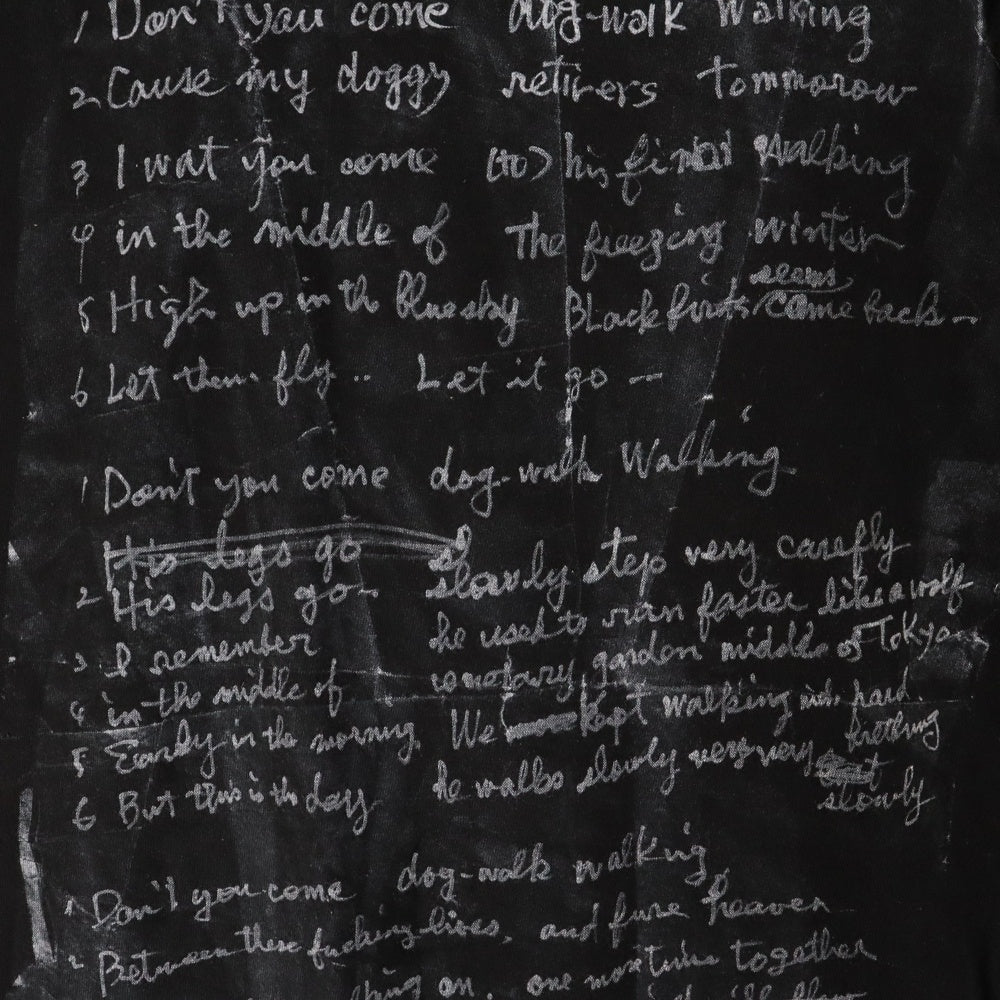 1 Don't you come dog-walk Walking
2 Cause my doggy retirers tommorow
3 I wat you come (to) his final walking
4 in the middle of The freezing winter
5 High up in th Bluesky Black birds seems came back -
6 Let them fly.. Let it go --
1 Don't you come dog-walk Walking
His legs go
2 His legs go- slowly step very carefly
3 I remember he used to run faster like a wolf
4 in the middle of cemetary garden middle of Tokyo
5 Early in the morning, We kept walking with hard
6 But this is th day he walks slowly very very slowly
1 Don't you come dog-walk walking,
2 Between these fucking lives, and heaven
on, one more together